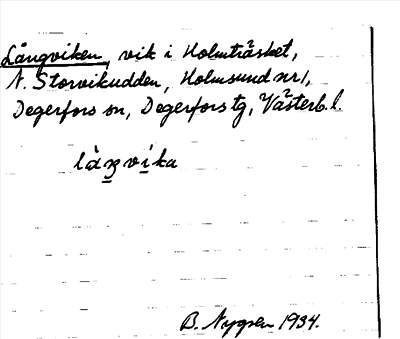 Långviken, vik i Holmträsket,
N. Storvikudden, Holmsund nr 1,
Degerfors sn, Degerfors tg, Västerb. l.
làŋvika
B. Nygren 1934.